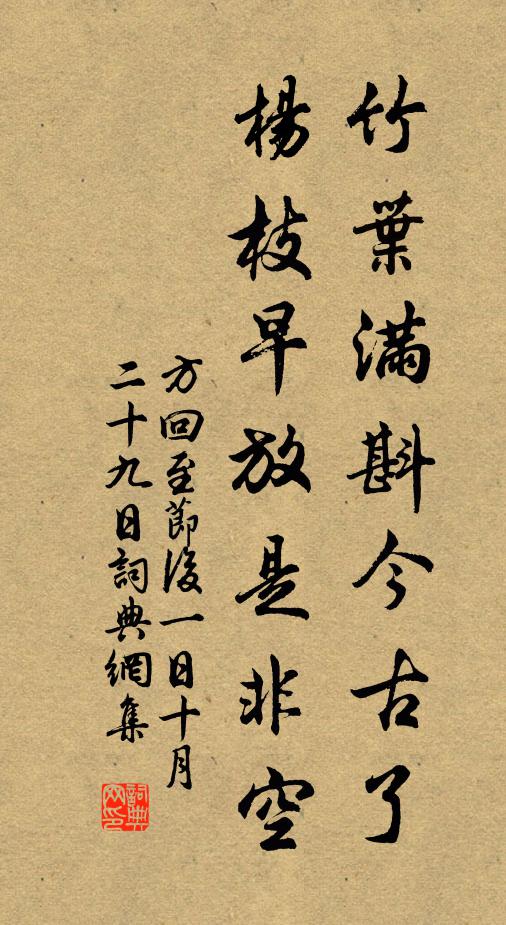 竹葉滿斟今古了
楊枝早放是非空
方回至節後一日十月
二十九日詞典網集
詞典網印